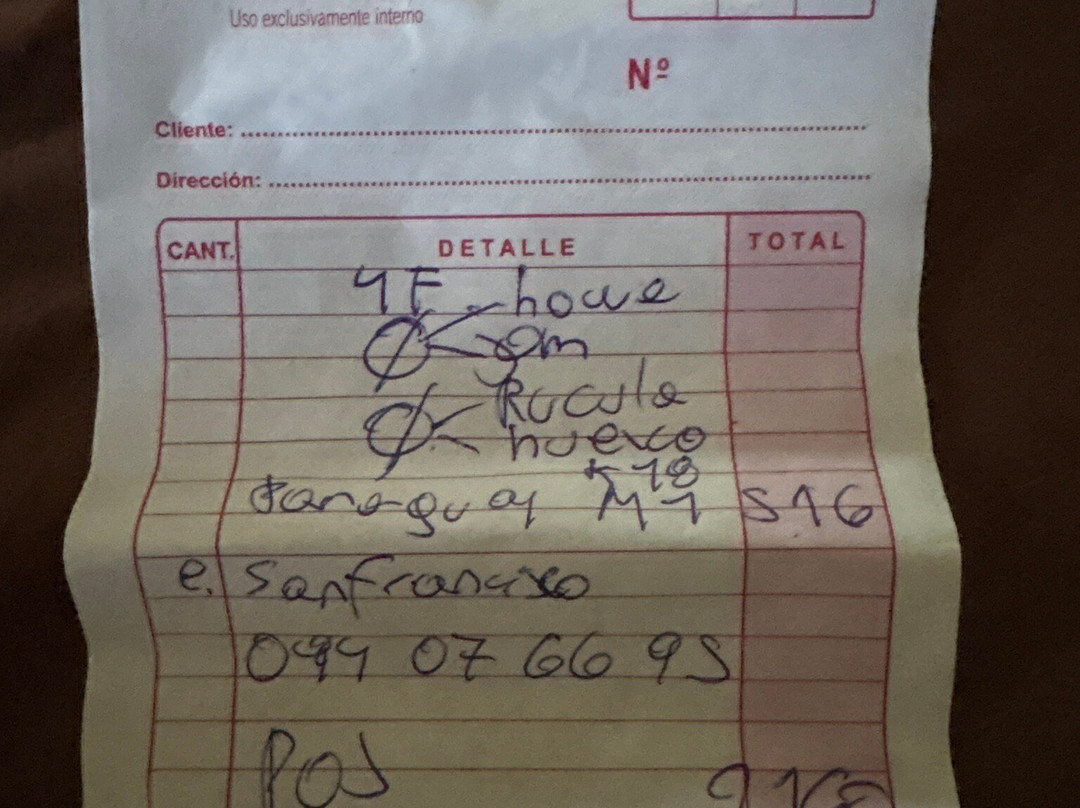 Uso exclusivamente interno
Nº
Cliente:
Dirección:
CANT. DETALLE TOTAL
4 F
Rucula
huevo
K 18
M 1 S 16
e. San francisco
099 07 66 95
POS